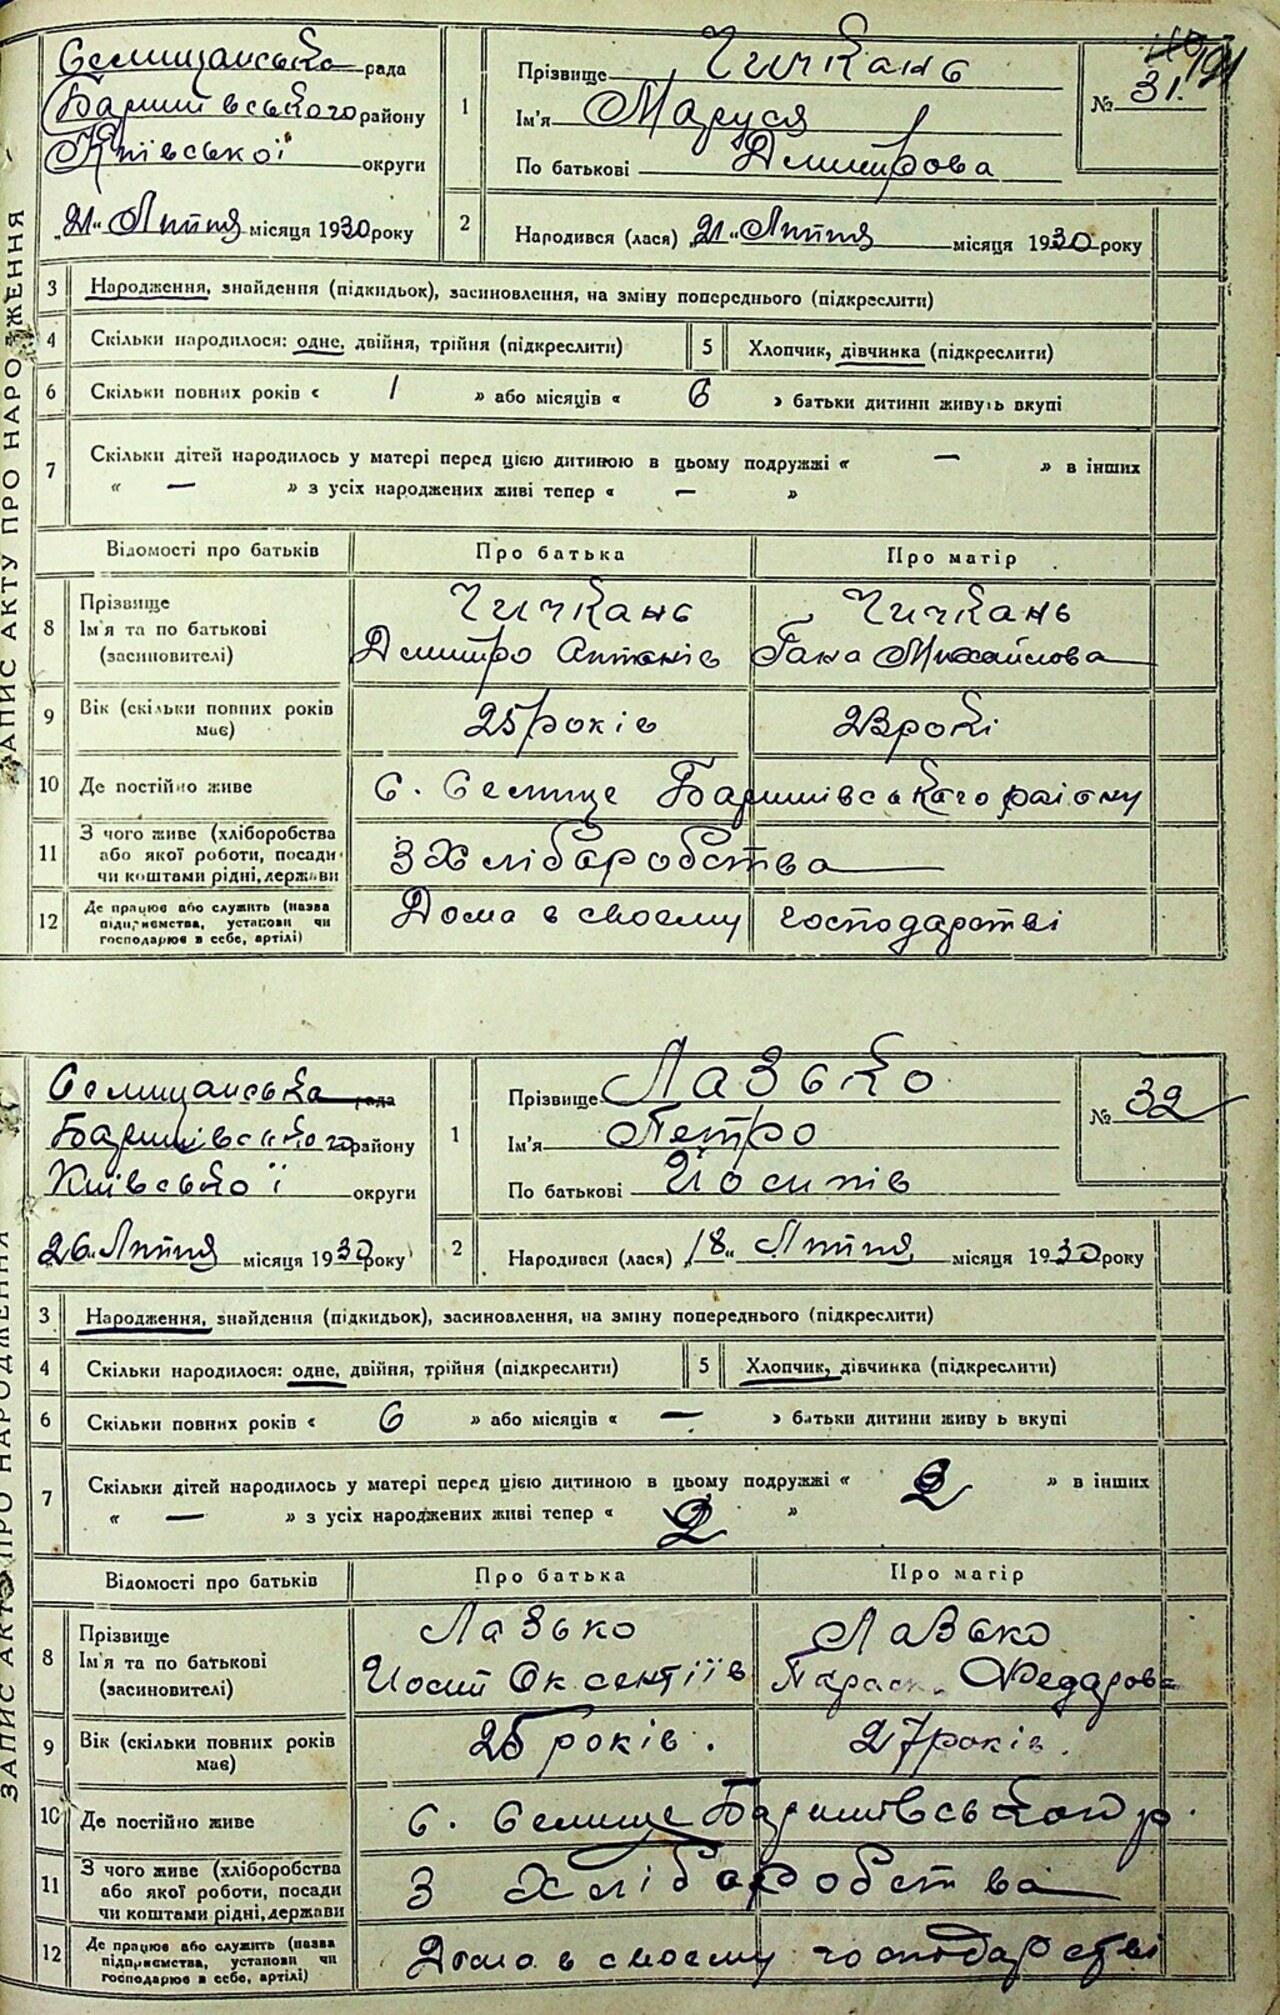 ЗАПИС АКТУ ПРО НАРОДЖЕННЯ
191
Селищанська рада
Баришівського району
Київської округи
„21“ Липня місяця 1930 року
1
Прізвище Чичкань
Ім'я Маруся
По батькові Дмитрова
№ 31.
2
Народився (лася) „21“ Липня місяця 1930 року
3 Народження, знайдення (підкидьок), засиновлення, на зміну попереднього (підкреслити)
4 Скільки народилося: одне, двійня, трійня (підкреслити) 5 Хлопчик, дівчинка (підкреслити)
6 Скільки повних років « 1 » або місяців « 6 » батьки дитини живуть вкупі
7 Скільки дітей народилось у матері перед цією дитиною в цьому подружжі « — » в інших
« — » з усіх народжених живі тепер « — »
Відомості про батьків Про батька Про матір
8 Прізвище Ім'я та по батькові (засиновителі)
Чичкань Чичкань
Дмитро Антонів Гана Михайлова
9 Вік (скільки повних років має) 25 років 23 роки
10 Де постійно живе с. Селище Баришівського району
11 З чого живе (хліборобства або якої роботи, посади чи коштами рідні, держави З Хліборобства
12 Де працює або служить (назва підприємства, установи чи господарює в себе, артілі) Дома в своєму господарстві
ЗАПИС АКТУ ПРО НАРОДЖЕННЯ
Селищанська рада
Баришівського району
Київської округи
26 „ Липня місяця 1930 року
1
Прізвище Лазько
Ім'я Петро
По батькові Йосипів
№ 32
2
Народився (лася) „18“ Липня місяця 1930 року
3 Народження, знайдення (підкидьок), засиновлення, на зміну попереднього (підкреслити)
4 Скільки народилося: одне, двійня, трійня (підкреслити) 5 Хлопчик, дівчинка (підкреслити)
6 Скільки повних років « 6 » або місяців « — » батьки дитини живу ь вкупі
7 Скільки дітей народилось у матері перед цією дитиною в цьому подружжі « 2 » в інших
« — » з усіх народжених живі тепер « 2 »
Відомості про батьків Про батька Про матір
8 Прізвище Ім'я та по батькові (засиновителі)
Лазько Лазько
Йосип Оксентіїв Параск. Федорова
9 Вік (скільки повних років має) 25 років. 27 років.
10 Де постійно живе с. Селище Баришівського р.
11 З чого живе (хліборобства або якої роботи, посади чи коштами рідні, держави З Хліборобства
12 Де працює або служить (назва підприємства, установи чи господарює в себе, артілі) Дома в своєму господарстві